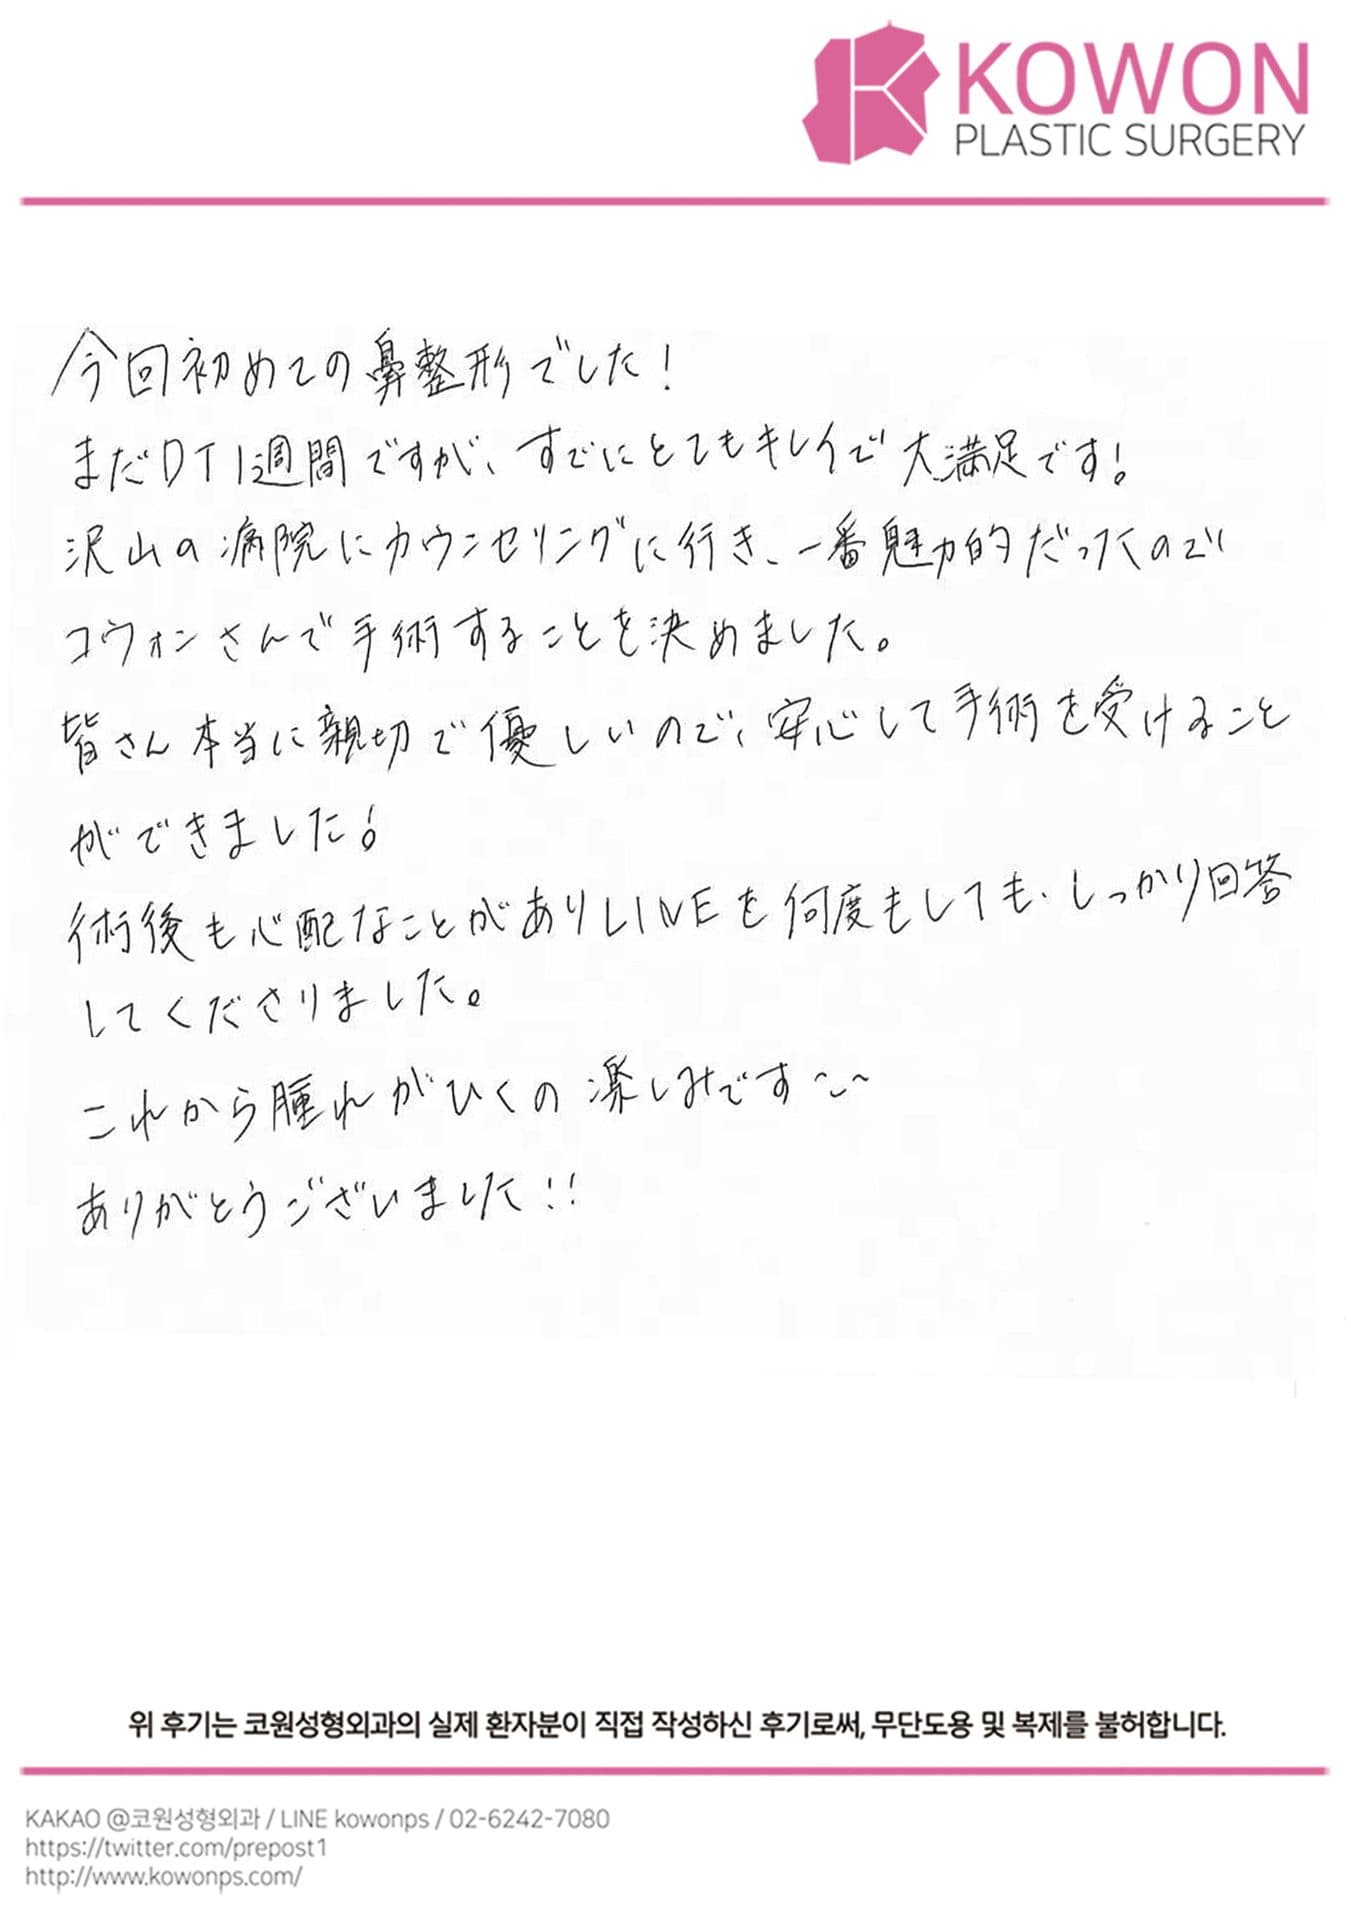 KOWON
PLASTIC SURGERY
今回初めての鼻整形でした!
まだDT1週間ですが、すでにとてもキレイで大満足です!
沢山の病院にカウンセリングに行き、一番魅力的だったので
コウォンさんで手術することを決めました。
皆さん本当に親切で優しいので、安心して手術を受けること
ができました!
術後も心配なことがありLINEを何度もしても、しっかり回答
してくださりました。
これから腫れがひくの楽しみです~~
ありがとうございました!!
위 후기는 코원성형외과의 실제 환자분이 직접 작성하신 후기로써, 무단도용 및 복제를 불허합니다.
KAKAO @코원성형외과 / LINE kowonps / 02-6242-7080
https://twitter.com/prepost1
http://www.kowonps.com/